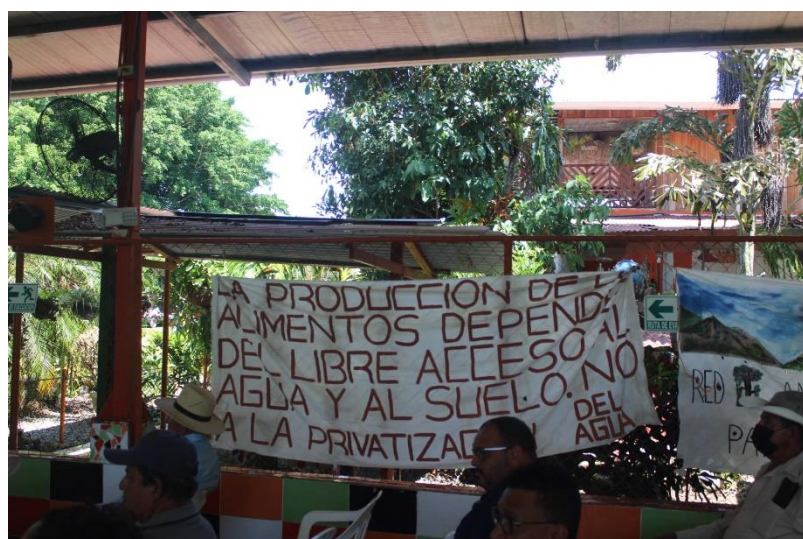 LA PRODUCCION DE L
ALIMENTOS DEPENDE
DEL LIBRE ACCESO AL
AGUA Y AL SUELO. NO
A LA PRIVATIZA DEL
AGUA
RUTA DE
RED
PA